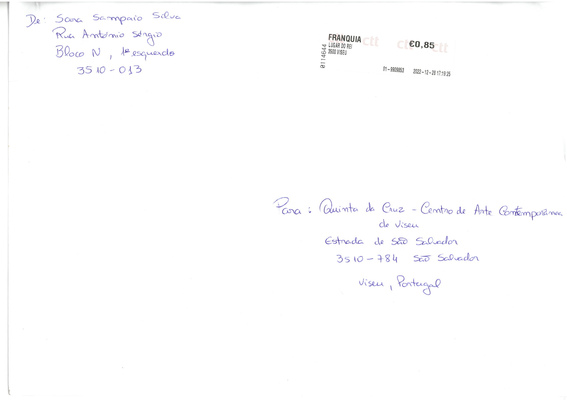 De: Sara Sampaio Silva
Rua António Sérgio
Bloco N, 1º esquerdo
3510-013
FRANQUIA
LUGAR DO REI
3500 VISEU
ctt
€0,85
Para: Quinta da Cruz - Centro de Arte Contemporânea
de Viseu
Estrada de São Salvador
3510-784 São Salvador
Viseu, Portugal